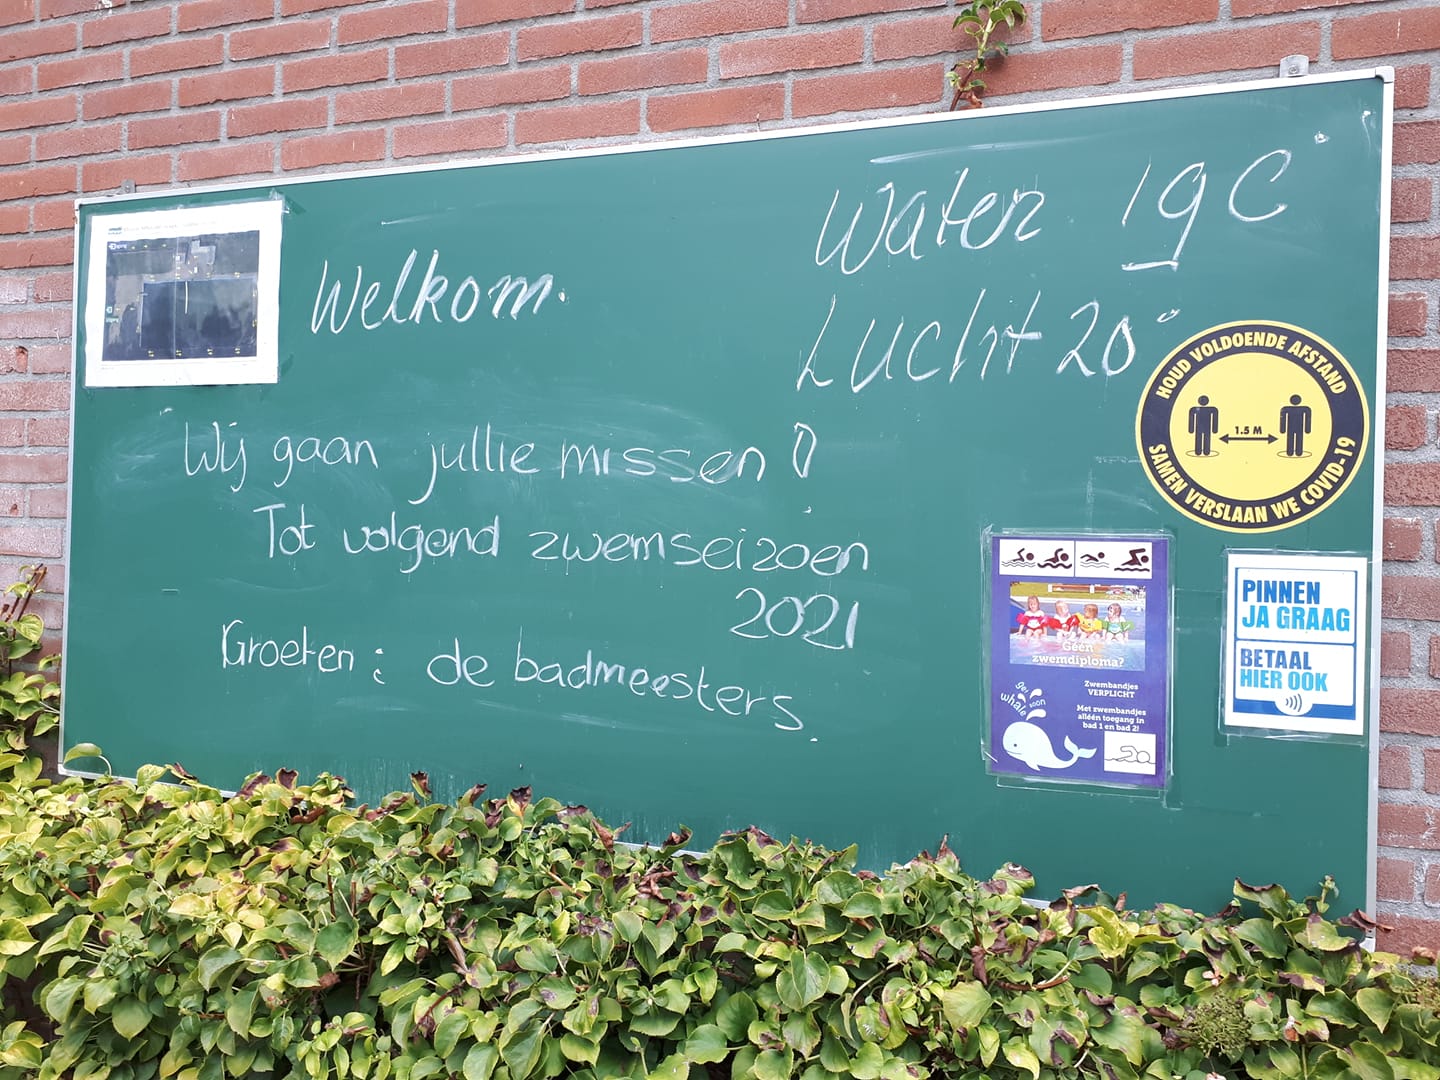 Welkom.
Water 19 C°
Lucht 20°
Wij gaan jullie missen!
Tot volgend zwemseizoen
2021
Groeten: de badmeesters.
HOUD VOLDOENDE AFSTAND
1.5 M
SAMEN VERSLAAN WE COVID-19
Geen
zwemdiploma?
Zwembandjes
VERPLICHT
Met zwembandjes
alléén toegang in
bad 1 en bad 2!
get
whale
soon
PINNEN
JA GRAAG
BETAAL
HIER OOK